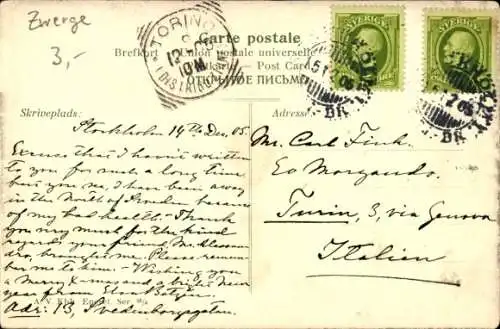 Zwerge
3,-
TORINO
DISTRIBUZIONE
SVERIGE
SVERIGE
Carte postale
Brefkort Union postale universelle
Post Card
ОТКРЫТОЕ ПИСЬМО
Skriveplads:
Adresse
Stockholm 14th Dec. 05.
Excuse that I haven't written
to you for such a long time,
but you see, I have been away
in the North of Sweden because
of my bad health. Thank
you very much for the kind
regards your friend Mr. Alessan
dro, brought me. Please remem
ber me to him. - Wishing you
a merry X-mas and a happy New
year from Elsa
Adr: 13, Svedenborgsgatan.
Mr. Carl Fink.
Co Morgando.
Turin, 3, via Genova
Italien